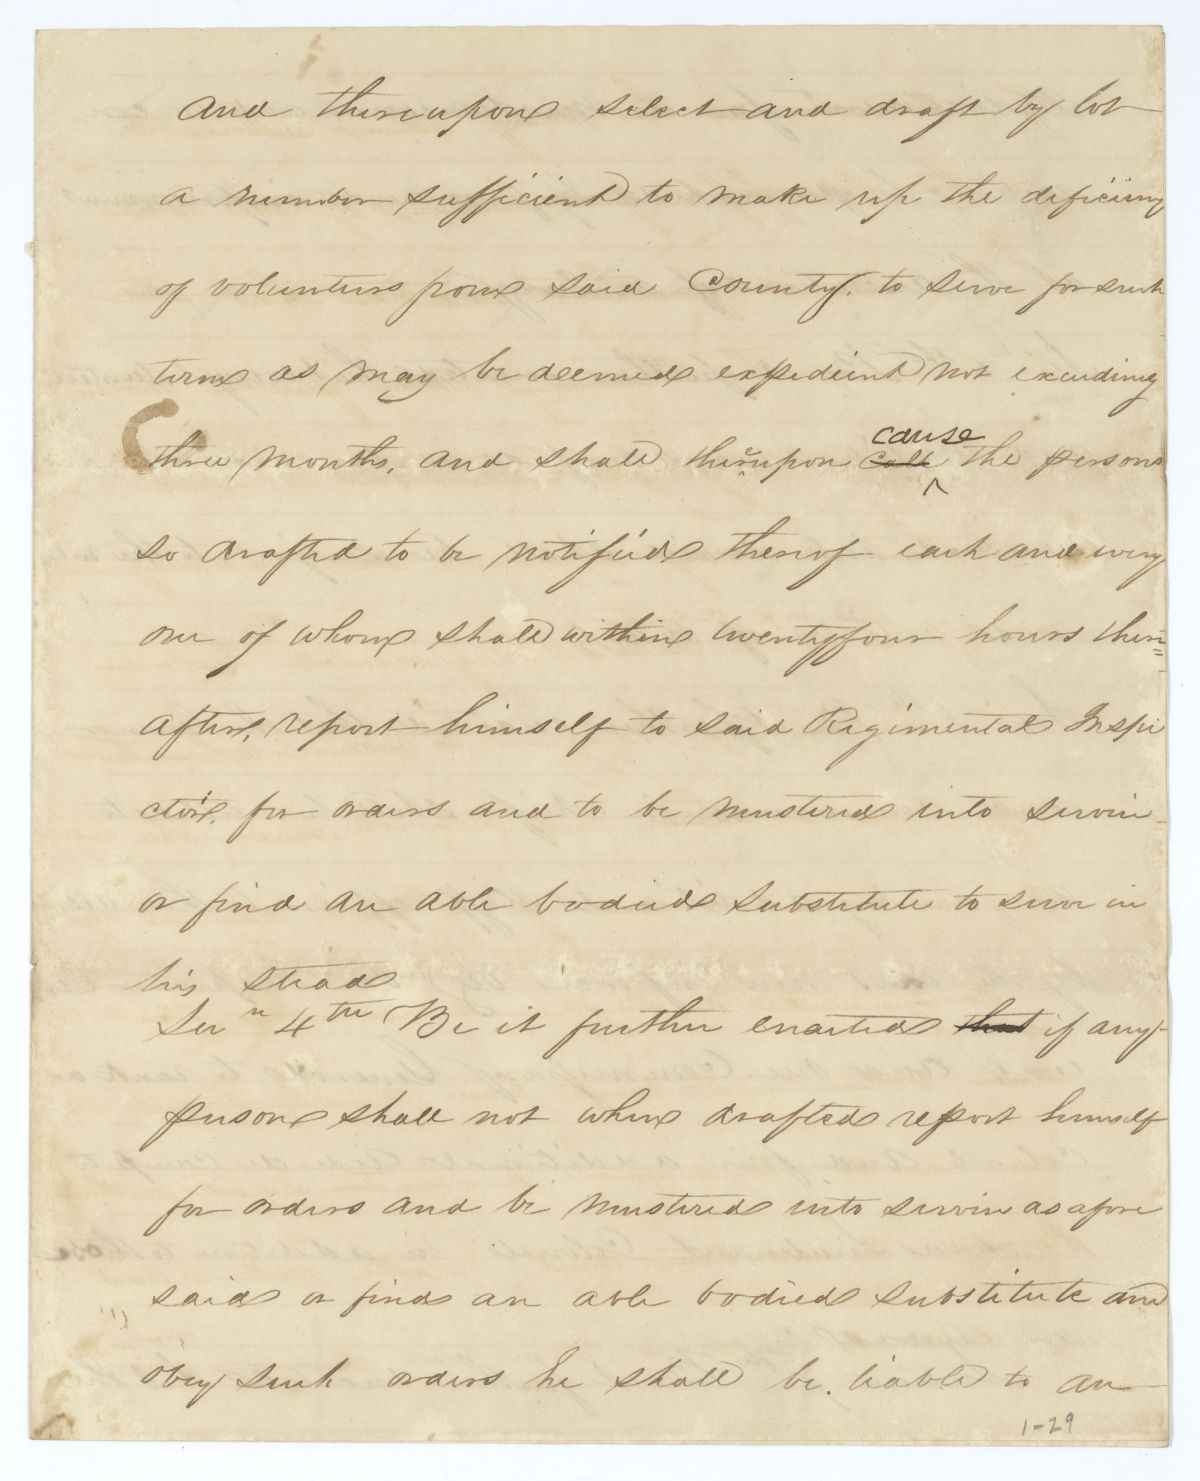 and thereupon select and draft by lot
a number sufficient to make up the deficiency
of volunteers from said County. to serve for such
term as may be deemed expedient not exceeding
three months, and shall thereupon call cause the persons
so drafted to be notified thereof each and every
one of whom shall within twentyfour hours there=
after, report himself to said Regimental Inspe
ctor, for orders and to be mustered into service
or find an able bodied substitute to serve in
his stead
Secn 4th Be it further enacted that if any
person shall not when drafted report himself
for orders and be mustered into service as afore
said or find an able bodied substitute and
obey such orders he shall be liable to an
1-29